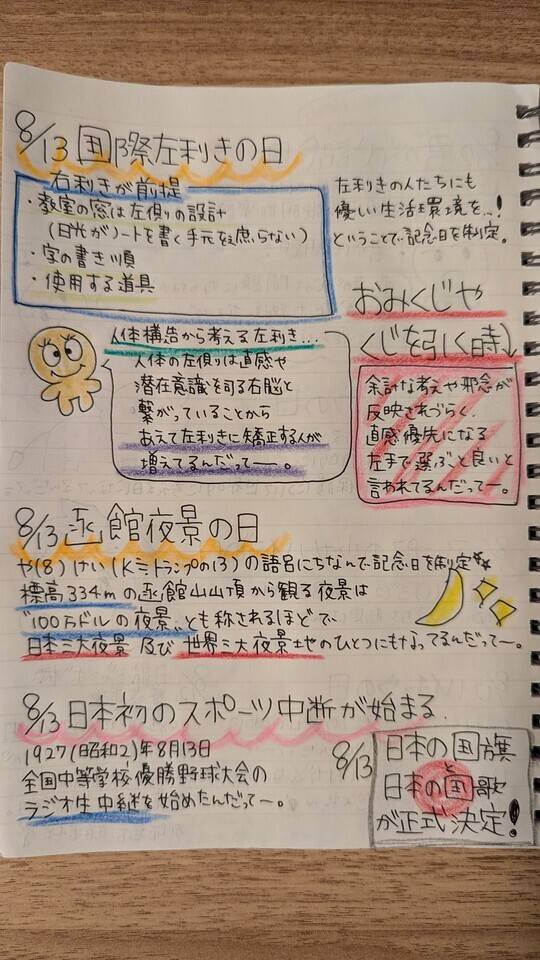 8/13 国際左利きの日
右利きが前提
・教室の窓は左側の設計
(日光がノートを書く手元を照らない)
・字の書き順
・使用する道具
左利きの人たちにも
優しい生活環境を…!
ということで記念日を制定。
人体構造から考える左利き…
人体の左側りは直感や
潜在意識を司る右脳と
繋がっていることから
あえて左利きに矯正する人が
増えてるんだってー。
おみくじや
くじを引く時↓
余計な考えや邪念が
反映されづらく、
直感優先になる
左手で選ぶと良いと
言われてるんだってー。
8/13 函館夜景の日
や(8)けい(K=トランプの13)の語呂にちなんで記念日を制定
標高334mの函館山山頂から観る夜景は
"100万ドルの夜景"とも称されるほどで、
日本三大夜景 及び 世界三大夜景地のひとつにもなってるんだってー。
8/13 日本初のスポーツ中断が始まる
1927(昭和2)年8月13日
全国中等学校優勝野球大会の
ラジオ生中継を始めたんだってー。
8/13
日本の国旗
と
日本の国歌
が正式決定!